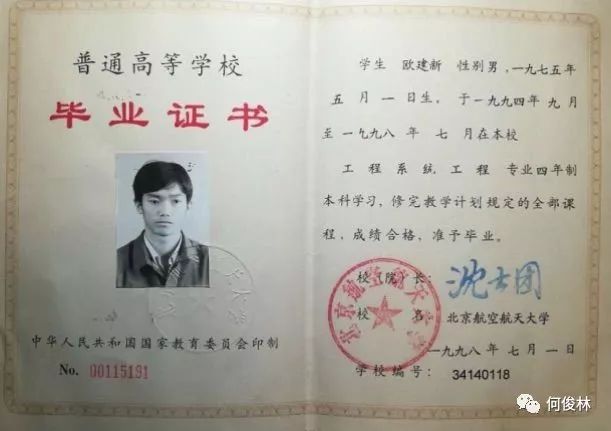 普通高等学校
毕业证书
中华人民共和国国家教育委员会印制
No. 00115191
学生 欧建新 性别男,一九七五年
五月一日生。于一九九四年九月
至一九九八年 七月在本校
工程系统工程 专业四年制
本科学习,修完教学计划规定的全部课
程,成绩合格,准予毕业。
校(院)长: 沈士团
校 名 北京航空航天大学
北京航空航天大学
一九九八年七月一日
学校编号: 34140118
何俊林